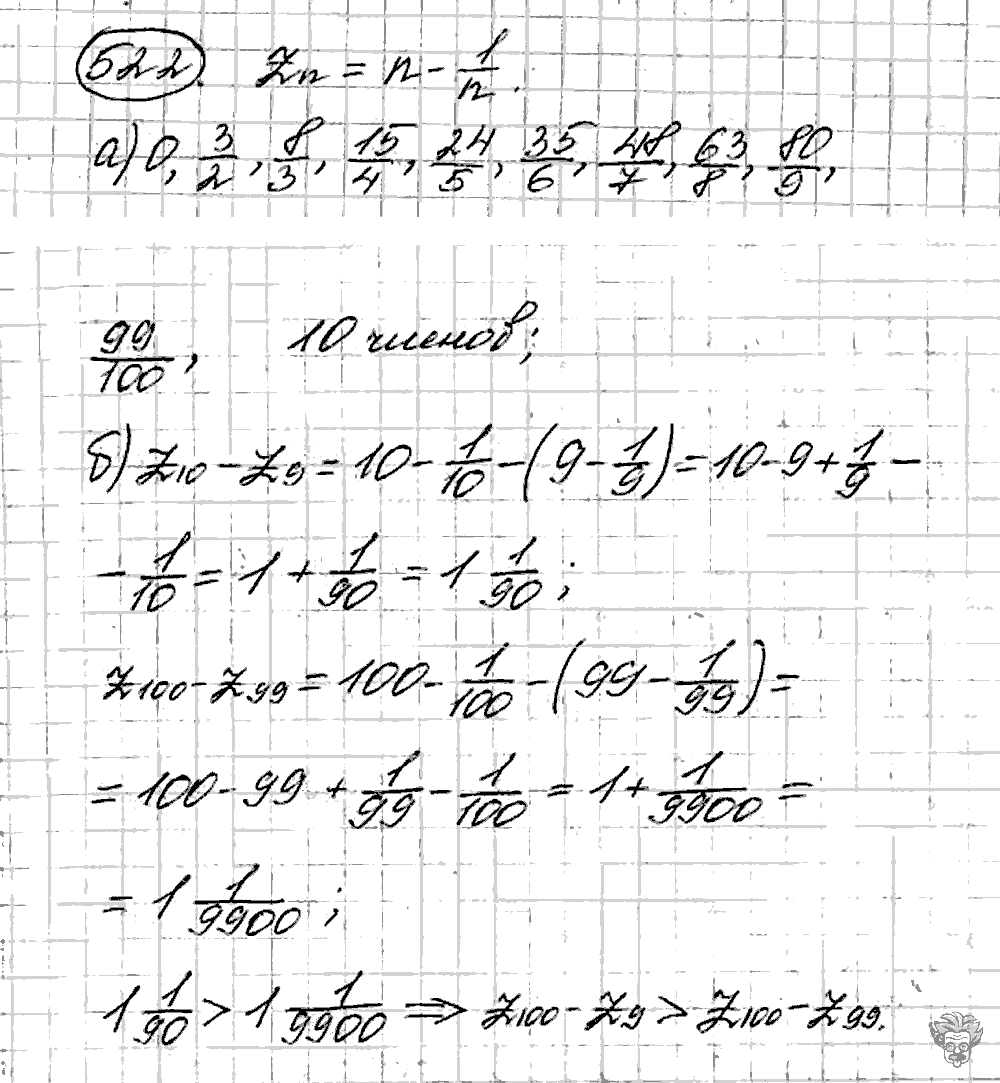 522. Zn = n - 1/n.
а) 0, 3/2, 8/3, 15/4, 24/5, 35/6, 48/7, 63/8, 80/9,
99/100, 10 членов;
б) Z10 - Z9 = 10 - 1/10 - (9 - 1/9) = 10 - 9 + 1/9 -
- 1/10 = 1 + 1/90 = 1 1/90;
Z100 - Z99 = 100 - 1/100 - (99 - 1/99) =
= 100 - 99 + 1/99 - 1/100 = 1 + 1/9900 =
= 1 1/9900;
1 1/90 > 1 1/9900 ⇒ Z100 - Z9 > Z100 - Z99.